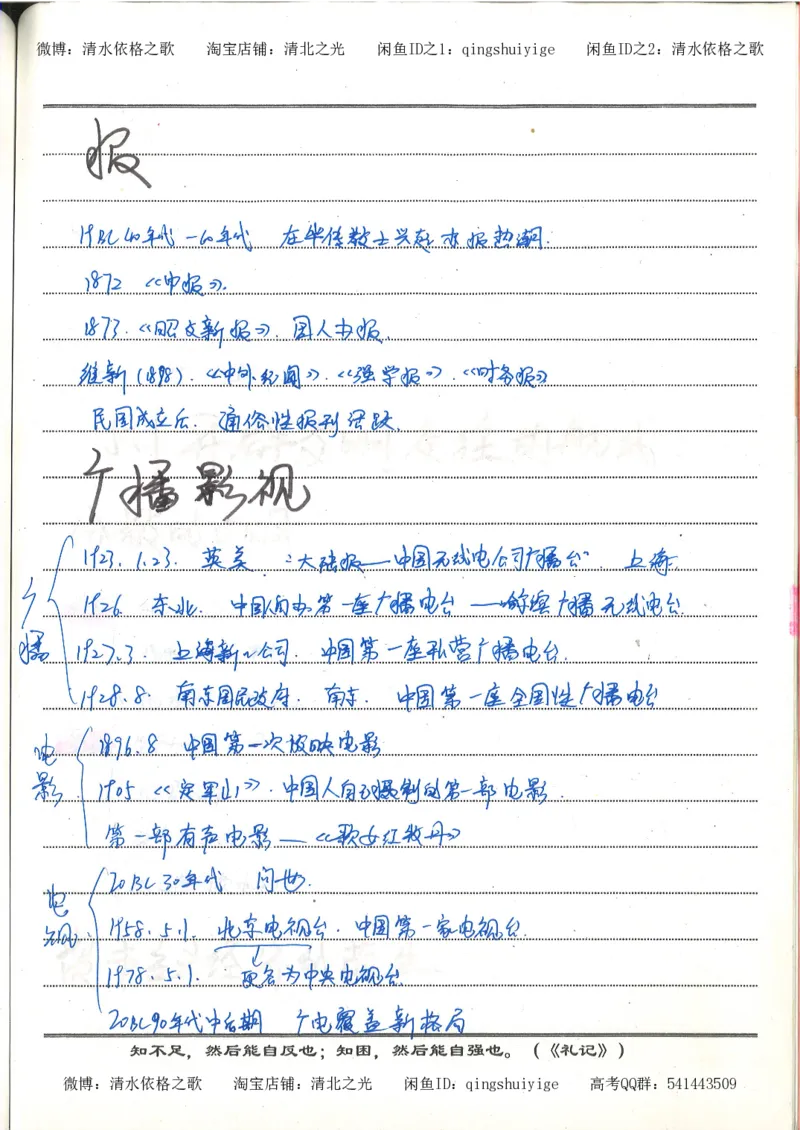 微博：清水依格之歌 淘宝店铺：清北之光 闲鱼ID之1：qingshuiyige 闲鱼ID之2：清水依格之歌
报
19BC 40年代-60年代 在华传教士兴起办报热潮.
1872 《申报》.
1873.《昭文新报》. 国人办报.
维新(1898).《中外纪闻》.《强学报》.《时务报》
民国成立后. 通俗性报刊活跃.
广播影视
广播
1923.1.23. 英美 "大陆报——中国无线电公司广播台" 上海
1926. 东北. 中国自办第一座广播电台——哈尔滨广播无线电台.
1927.3. 上海新新公司. 中国第一座私营广播电台.
1928.8. 南京国民政府. 南京. 中国第一座全国性广播电台
电影
1896.8 中国第一次放映电影
1905 《定军山》. 中国人自己摄制的第一部电影.
第一部有声电影——《歌女红牡丹》
电视
20BC 30年代 问世.
1958.5.1. 北京电视台. 中国第一家电视台.
1978.5.1. 更名为中央电视台.
20BC90年代中后期 广电覆盖新格局
知不足，然后能自反也；知困，然后能自强也。（《礼记》）
微博：清水依格之歌 淘宝店铺：清北之光 闲鱼ID：qingshuiyige 高考QQ群：541443509